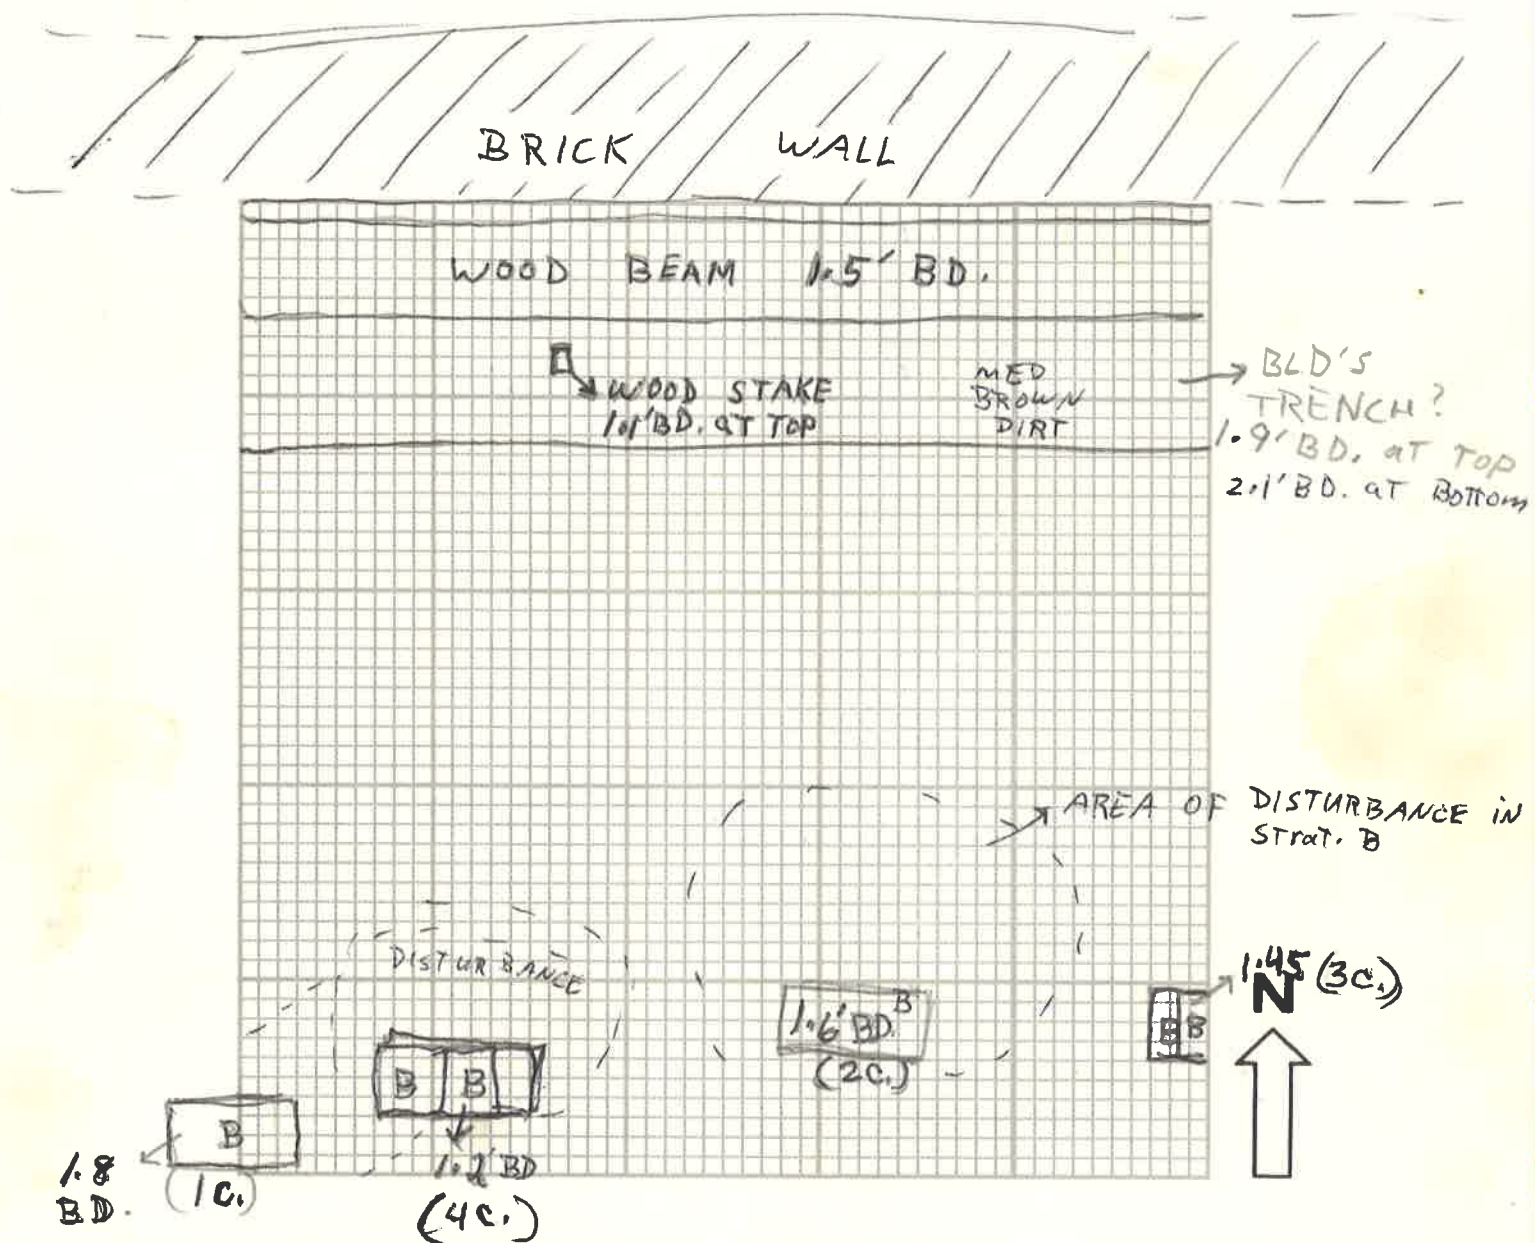 BRICK WALL
WOOD BEAM 1.5' BD.
WOOD STAKE
1.1' BD. AT TOP
MED
BROWN
DIRT
BLD'S
TRENCH?
1.9' BD. AT TOP
2.1' BD. AT BOTTOM
AREA OF DISTURBANCE IN
STRAT. B
DISTURBANCE
1.6' BD. B
(2C.)
B B
1.45 (3C.)
N
B B
1.2' BD
(4C.)
B
1.8
BD.
(1C.)